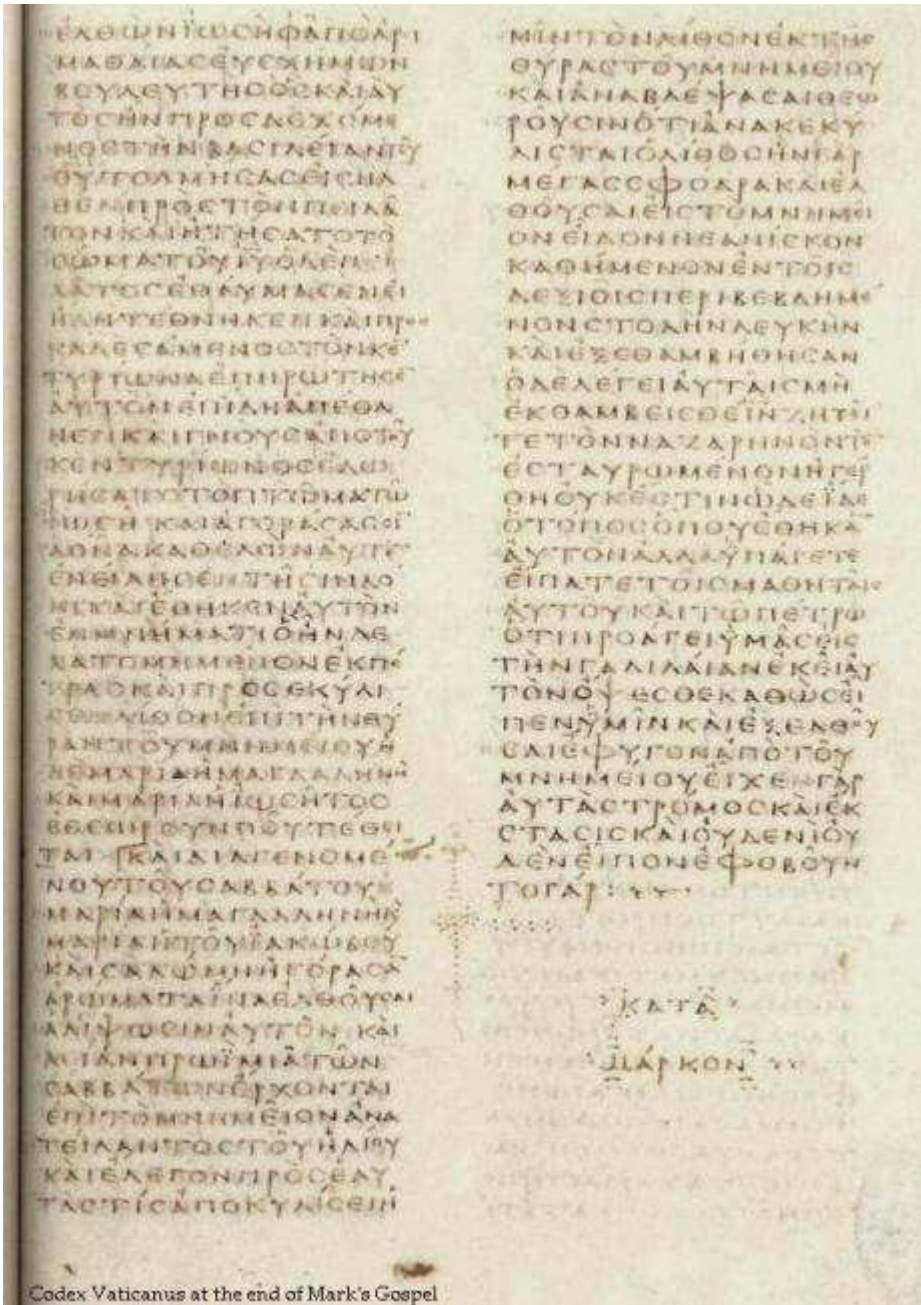 ΕΛΘΩΝΙΩϹΗΦΑΠΟΑΡΙ
ΜΑΘΑΙΑϹΕΥϹΧΗΜΩΝ
ΒΟΥΛΕΥΤΗϹΟϹΚΑΙΑΥ
ΤΟϹΗΝΠΡΟϹΔΕΧΟΜΕ
ΝΟϹΤΗΝΒΑϹΙΛΕΙΑΝΤΟΥ
ΘΥΤΟΛΜΗϹΑϹΕΙϹΗΛ
ΘΕΝΠΡΟϹΤΟΝΠΕΙΛΑ
ΤΟΝΚΑΙΗΤΗϹΑΤΟΤΟ
ϹΩΜΑΤΟΥΙΥΟΔΕΠΕΙ
ΛΑΤΟϹΕΘΑΥΜΑϹΕΝΕΙ
ΗΔΗΤΕΘΝΗΚΕΝΚΑΙΠΡΟϹ
ΚΑΛΕϹΑΜΕΝΟϹΤΟΝΚΕ̅
ΤΥΡΙΩΝΑΕΠΗΡΩΤΗϹΕ̅
ΑΥΤΟΝΕΙΗΔΗΑΠΕΘΑ
ΝΕΝΚΑΙΓΝΟΥϹΑΠΟΤΟΥ
ΚΕΝΤΥΡΙΩΝΟϹΕΔΩ
ΡΗϹΑΤΟΤΟΠΤΩΜΑΤΩ
ΙΩϹΗΚΑΙΑΓΟΡΑϹΑϹϹΙ̅
ΔΟΝΑΚΑΘΕΛΩΝΑΥΤΟ̅
ΕΝΕΙΛΗϹΕΝΤΗϹΙΝΔΟ
ΝΙΚΑΙΕΘΗΚΕΝΑΥΤΟΝ
ΕΝΜΝΗΜΑΤΙΟΗΝΛΕ
ΛΑΤΟΜΗΜΕΝΟΝΕΚΠΕ
ΤΡΑϹΚΑΙΠΡΟϹΕΚΥΛΙ
ϹΕΝΛΙΘΟΝΕΠΙΤΗΝΘΥ
ΡΑΝΤΟΥΜΝΗΜΕΙΟΥΗ
ΔΕΜΑΡΙΑΗΜΑΓΔΑΛΗΝΗ
ΚΑΙΜΑΡΙΑΗΙΩϹΗΤΟϹ
ΕΘΕΩΡΟΥΝΠΟΥΤΕΘΕΙ
ΤΑΙΚΑΙΔΙΑΓΕΝΟΜΕ
ΝΟΥΤΟΥϹΑΒΒΑΤΟΥΗ
ΜΑΡΙΑΗΜΑΓΔΑΛΗΝΗΚ
ΜΑΡΙΑΗΤΟΥΙΑΚΩΒΟΥ
ΚΑΙϹΑΛΩΜΗΗΓΟΡΑϹΑ̅
ΑΡΩΜΑΤΑΙΝΑΕΛΘΟΥϹΑΙ
ΑΛΙΨΩϹΙΝΑΥΤΟΝΚΑΙ
ΜΙΑΝΠΡΩΪΜΙΑΤΩΝ
ϹΑΒΒΑΤΩΝΕΡΧΟΝΤΑΙ
ΕΠΙΤΟΜΝΗΜΕΙΟΝΑΝΑ
ΤΕΙΛΑΝΤΟϹΤΟΥΗΛΙΟΥ
ΚΑΙΕΛΕΓΟΝΠΡΟϹΕΑΥ
ΤΑϹΤΙϹΑΠΟΚΥΛΙϹΕΙΗ
ΜΙΝΤΟΝΛΙΘΟΝΕΚΤΗϹ
ΘΥΡΑϹΤΟΥΜΝΗΜΕΙΟΥ
ΚΑΙΑΝΑΒΛΕΨΑϹΑΙΘΕΩ
ΡΟΥϹΙΝΟΤΙΑΝΑΚΕΚΥ
ΛΙϹΤΑΙΟΛΙΘΟϹΗΝΓΑΡ
ΜΕΓΑϹϹΦΟΔΡΑΚΑΙΕΛ
ΘΟΥϹΑΙΕΙϹΤΟΜΝΗΜΕΙ
ΟΝΕΙΔΟΝΝΕΑΝΙϹΚΟΝ
ΚΑΘΗΜΕΝΟΝΕΝΤΟΙϹ
ΔΕΞΙΟΙϹΠΕΡΙΒΕΒΛΗΜΕ
ΝΟΝϹΤΟΛΗΝΛΕΥΚΗΝ
ΚΑΙΕΞΕΘΑΜΒΗΘΗϹΑΝ
ΟΔΕΛΕΓΕΙΑΥΤΑΙϹΜΗ
ΕΚΘΑΜΒΕΙϹΘΕΙΝΖΗΤΕΙ
ΤΕΤΟΝΝΑΖΑΡΗΝΟΝΤΟ̅
ΕϹΤΑΥΡΩΜΕΝΟΝΗΓΕΡ
ΘΗΟΥΚΕϹΤΙΝΩΔΕΪΔΕ
ΟΤΟΠΟϹΟΠΟΥΕΘΗΚΑ̅
ΑΥΤΟΝΑΛΛΑΫΠΑΓΕΤΕ
ΕΙΠΑΤΕΤΟΙϹΜΑΘΗΤΑΙϹ
ΑΥΤΟΥΚΑΙΤΩΠΕΤΡΩ
ΟΤΙΠΡΟΑΓΕΙΫΜΑϹΕΙϹ
ΤΗΝΓΑΛΙΛΑΙΑΝΕΚΕΙΑΥ
ΤΟΝΟΨΕϹΘΕΚΑΘΩϹΕΙ
ΠΕΝΫΜΙΝΚΑΙΕΞΕΛΘΟΥ
ϹΑΙΕΦΥΓΟΝΑΠΟΤΟΥ
ΜΝΗΜΕΙΟΥΕΙΧΕΝΓΑΡ
ΑΥΤΑϹΤΡΟΜΟϹΚΑΙΕΚ
ϹΤΑϹΙϹΚΑΙΟΥΔΕΝΙΟΥ
ΔΕΝΕΙΠΟΝΕΦΟΒΟΥΝ
ΤΟΓΑΡ:
ΚΑΤΑ
ΜΑΡΚΟΝ
Codex Vaticanus at the end of Mark's Gospel